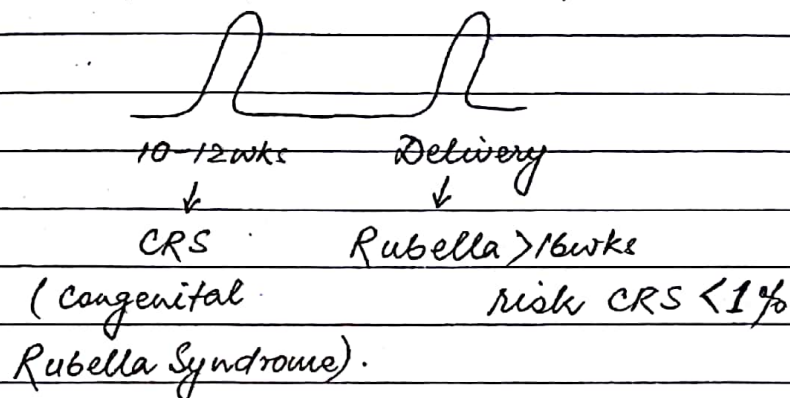 10-12wks Delivery
↓ ↓
CRS Rubella >16wks
(Congenital risk CRS <1%
Rubella Syndrome).